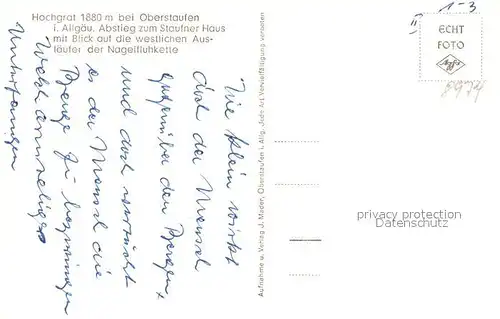 Hochgrat 1880 m bei Oberstaufen
i. Allgäu. Abstieg zum Staufner Haus
mit Blick auf die westlichen Aus-
läufer der Nagelfluhkette
Wie klein wirkt
doch der Mensch
gegenüber den Bergen,
und doch versucht
es der Mensch die
Berge zu bezwingen
Welch armseliges
Unterfangen
Aufnahme u. Verlag J. Mader, Oberstaufen i. Allg. Jede Art Vervielfältigung verboten
II 1-3
ECHT
FOTO
Agfa
privacy protection
Datenschutz